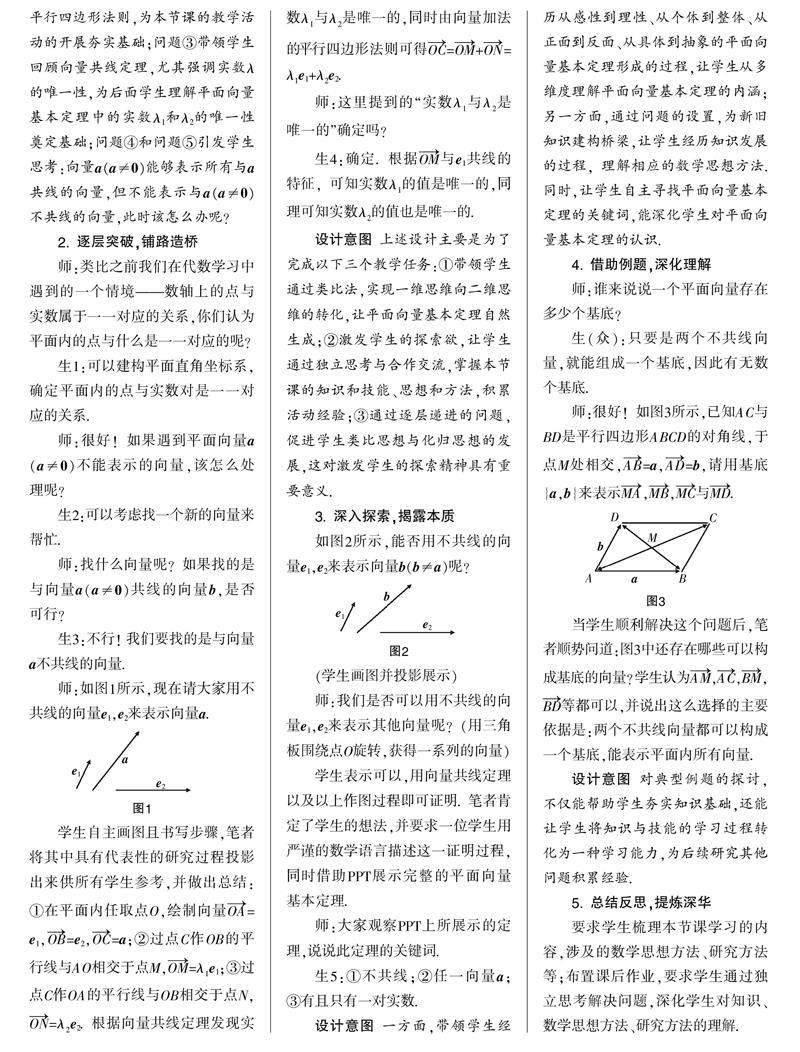 平行四边形法则,为本节课的教学活
动的开展夯实基础;问题③带领学生
回顾向量共线定理,尤其强调实数λ
的唯一性,为后面学生理解平面向量
基本定理中的实数λ₁和λ₂的唯一性
奠定基础;问题④和问题⑤引发学生
思考:向量a(a≠0)能够表示所有与a
共线的向量,但不能表示与a(a≠0)
不共线的向量,此时该怎么办呢?
2. 逐层突破,铺路造桥
师:类比之前我们在代数学习中
遇到的一个情境——数轴上的点与
实数属于一一对应的关系,你们认为
平面内的点与什么是一一对应的呢?
生1:可以建构平面直角坐标系,
确定平面内的点与实数对是一一对
应的关系.
师:很好! 如果遇到平面向量a
(a≠0)不能表示的向量,该怎么处
理呢?
生2:可以考虑找一个新的向量来
帮忙.
师:找什么向量呢? 如果找的是
与向量a(a≠0)共线的向量b,是否
可行?
生3:不行! 我们要找的是与向量
a不共线的向量.
师:如图1所示,现在请大家用不
共线的向量e₁,e₂来表示向量a.
e₁
a
e₂
图1
学生自主画图且书写步骤,笔者
将其中具有代表性的研究过程投影
出来供所有学生参考,并做出总结:
①在平面内任取点O,绘制向量OA→=
e₁,OB→=e₂,OC→=a;②过点C作OB的平
行线与AO相交于点M,OM→=λ₁e₁;③过
点C作OA的平行线与OB相交于点N,
ON→=λ₂e₂. 根据向量共线定理发现实
数λ₁与λ₂是唯一的,同时由向量加法
的平行四边形法则可得OC→=OM→+ON→=
λ₁e₁+λ₂e₂.
师:这里提到的“实数λ₁与λ₂是
唯一的”确定吗?
生4:确定. 根据OM→与e₁共线的
特征, 可知实数λ₁的值是唯一的,同
理可知实数λ₂的值也是唯一的.
设计意图 上述设计主要是为了
完成以下三个教学任务:①带领学生
通过类比法,实现一维思维向二维思
维的转化,让平面向量基本定理自然
生成;②激发学生的探索欲,让学生
通过独立思考与合作交流,掌握本节
课的知识和技能、思想和方法,积累
活动经验;③通过逐层递进的问题,
促进学生类比思想与化归思想的发
展,这对激发学生的探索精神具有重
要意义.
3. 深入探索,揭露本质
如图2所示,能否用不共线的向
量e₁,e₂来表示向量b(b≠a)呢?
e₁
b
e₂
图2
(学生画图并投影展示)
师:我们是否可以用不共线的向
量e₁,e₂来表示其他向量呢? (用三角
板围绕点O旋转,获得一系列的向量)
学生表示可以,用向量共线定理
以及以上作图过程即可证明. 笔者肯
定了学生的想法,并要求一位学生用
严谨的数学语言描述这一证明过程,
同时借助PPT展示完整的平面向量
基本定理.
师:大家观察PPT上所展示的定
理,说说此定理的关键词.
生5:①不共线;②任一向量a;
③有且只有一对实数.
设计意图 一方面,带领学生经
历从感性到理性、从个体到整体、从
正面到反面、从具体到抽象的平面向
量基本定理形成的过程,让学生从多
维度理解平面向量基本定理的内涵;
另一方面,通过问题的设置,为新旧
知识建构桥梁,让学生经历知识发展
的过程, 理解相应的数学思想方法.
同时,让学生自主寻找平面向量基本
定理的关键词,能深化学生对平面向
量基本定理的认识.
4. 借助例题,深化理解
师:谁来说说一个平面向量存在
多少个基底?
生(众):只要是两个不共线向
量,就能组成一个基底,因此有无数
个基底.
师:很好! 如图3所示,已知AC与
BD是平行四边形ABCD的对角线,于
点M处相交,AB→=a,AD→=b,请用基底
{a,b}来表示MA→,MB→,MC→与MD→.
D
C
M
b
A
a
B
图3
当学生顺利解决这个问题后,笔
者顺势问道:图3中还存在哪些可以构
成基底的向量?学生认为AM→,AC→,BM→,
BD→等都可以,并说出这么选择的主要
依据是:两个不共线向量都可以构成
一个基底,能表示平面内所有向量.
设计意图 对典型例题的探讨,
不仅能帮助学生夯实知识基础,还能
让学生将知识与技能的学习过程转
化为一种学习能力,为后续研究其他
问题积累经验.
5. 总结反思,提炼深华
要求学生梳理本节课学习的内
容,涉及的数学思想方法、研究方法
等;布置课后作业,要求学生通过独
立思考解决问题,深化学生对知识、
数学思想方法、研究方法的理解.